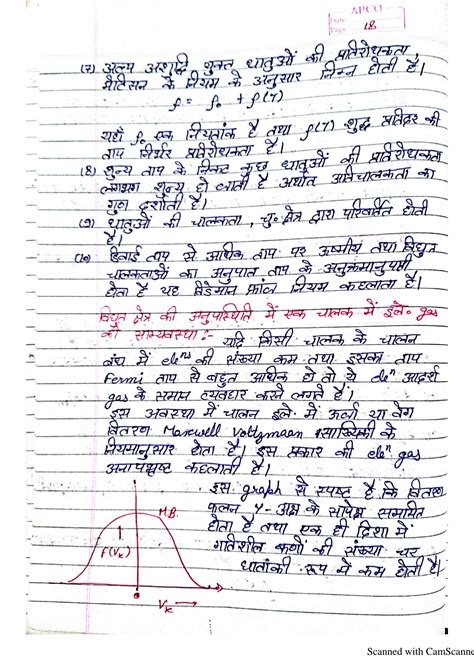 APCO
Date
Page 18
(7) अल्प अशुद्धि युक्त धातुओं की प्रतिरोधकता,
मैटिसन के नियम के अनुसार निम्न होती है।
ρ = ρ₀ + ρ(T)
यहाँ ρ₀ एक नियतांक है तथा ρ(T) शुद्ध की
ताप निर्भर प्रतिरोधकता है।
(8) शून्य ताप के निकट कुछ धातुओं की प्रतिरोधकता
लगभग शून्य हो जाती है अर्थात अतिचालकता का
गुण दर्शाती है।
(9) धातुओं की चालकता, चु० क्षेत्र द्वारा परिवर्तित होती
है।
(10) डिबाई ताप से अधिक ताप पर ऊष्मीय तथा विद्युत
चालकताओं का अनुपात ताप के अनुक्रमानुपाती
होता है यह विडेमान फ्रांज नियम कहलाता है।
विद्युत क्षेत्र की अनुपस्थिति में एक चालक में इले० gas
की साम्यवस्था :-
यदि किसी चालक के चालन
बैंड में eleⁿˢ की संख्या कम तथा इसका ताप
Fermi ताप से बहुत अधिक हो तो ये eleⁿ आदर्श
gas के समान व्यवहार करने लगते हैं।
इस अवस्था में चालन इले. में ऊर्जा या वेग
वितरण Maxwell Voltzmaan सांख्यिकी के
नियमानुसार होता है। इस प्रकार की eleⁿ gas
अनापभ्रष्ट कहलाती है।
इस graph से स्पष्ट है कि वितरण
फलन y-अक्ष के सापेक्ष सममित
होता है तथा एक ही दिशा में
गतिशील कणों की संख्या चर
घातांकी रूप में कम होती है।
M.B.
↑
F(Vₖ)
0
Vₖ →
Scanned with CamScanne